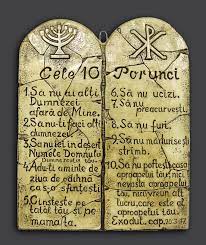 Cele 10 Porunci
1. Să nu ai alți
Dumnezei
afară de Mine.
2. Să nu-ți faci alți
dumnezei
3. Să nu iei în deșert
Numele Domnului
4. Adu-ți aminte de
ziua de odihnă
ca s-o sfințești
5. Cinstește pe
tatăl tău și pe
mama ta.
6. Să nu ucizi.
7. Să nu
preacurvești.
8. Să nu furi.
9. Să nu mărturisești
strîmb.
10. Să nu poftești casa
aproapelui tău, nici
nevasta aproapelui
tău, nici vreun alt
lucru, care este al
aproapelui tău.
Exodul, cap.